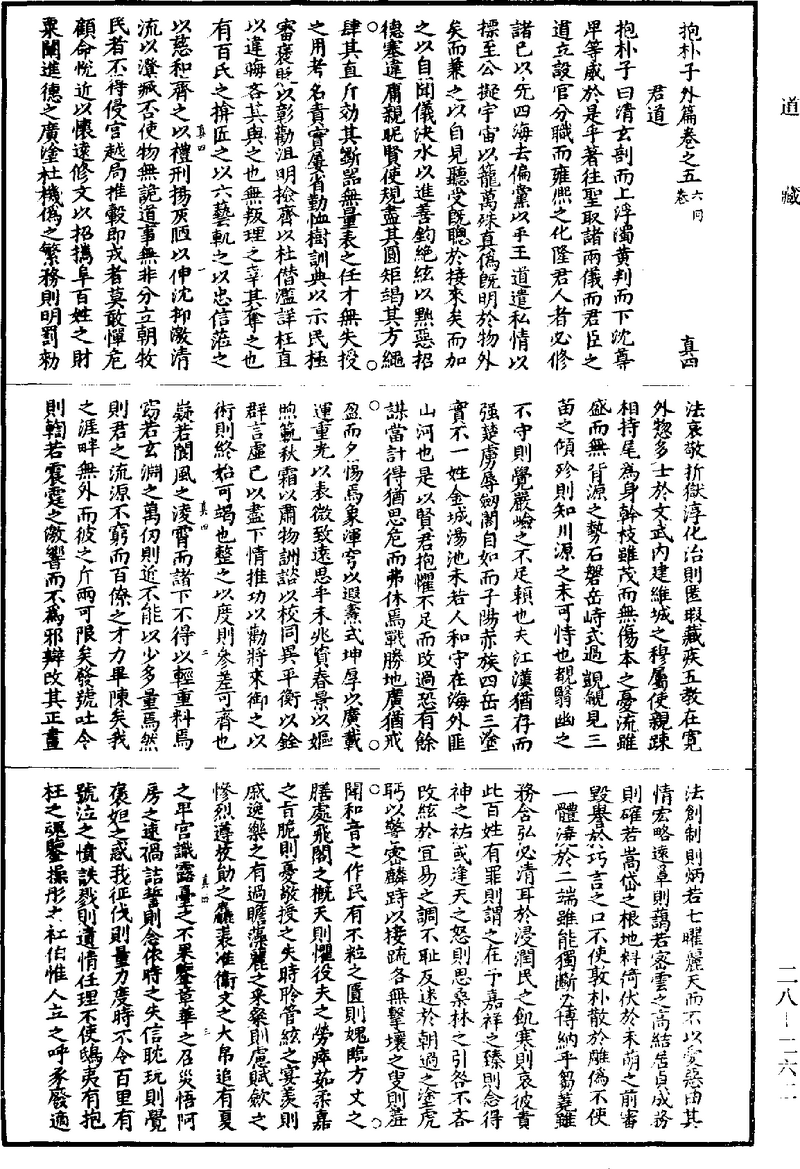 道藏
抱朴子外篇卷之五 六同卷 真四
君道
抱朴子曰清玄剖而上浮濁黄判而下沈尊
卑等威於是乎著往聖取諸兩儀而君臣之
道立設官分職而雍熙之化隆君人者必修
諸己以先四海去偏黨以平王道遣私情以
標至公擬宇宙以籠萬殊真偽既明於物外
矣而兼之以自見聽受既聰於接來矣而加
之以自聞儀決水以進善鈞絕絃以黜惡招
德塞違庸親昵賢使規盡其圓矩竭其方繩
肆其直斤効其斲器無量表之任才無失授
之用考名責實屢省勤恤樹訓典以示民極
審褒貶以彰勸沮明檢齊以杜僭濫詳枉直
以違晦吝其與之也無叛理之幸其奪之也
有百氏之揜匠之以六藝軌之以忠信蒞之
真四 一
以慈和齊之以禮刑揚仄陋以伸沈抑激清
流以澄臧否使物無詭道事無非分立朝牧
民者不得侵官越局推轂即戎者莫敢憚危
顧命悅近以懷遠修文以招攜阜百姓之財
粟闡進德之廣塗杜機偽之繁務則明罰勑
法哀敬折獄淳化治則匿瑕藏疾五教在寬
外惣多士於文武內建維城之穆屬使親踈
相持尾為身幹枝雖茂而無傷本之憂流雖
盛而無背源之勢石磐岳峙式遏覬覦見三
苗之傾殄則知川源之未可恃也覩翳幽之
不守則覺嚴嶮之不足賴也夫江漢猶存而
强楚虜辱劒閣自如而子陽赤族四岳三塗
實不一姓金城湯池未若人和守在海外匪
山河也是以賢君抱懼不足而改過恐有餘
謀當計得猶思危而弗休焉戰勝地廣猶戒
盈而夕惕焉象渾穹以遐燾式坤厚以廣載
運重光以表微致遠思乎未兆質春景以嫗
煦範秋霜以肅物詶諮以校同異平衡以銓
群言虛已以盡下情推功以勸將來御之以
術則終始可竭也整之以度則參差可齊也
真四 二
嶷若閬風之凌霄而諸下不得以輕重料焉
窈若玄淵之萬仞則近不能以少多量焉然
則君之流源不窮而百僚之才力畢陳矣我
之涯畔無外而彼之斤兩可限矣發號吐令
則鞫若震霆之激響而不為邪辯改其正畫
法創制則炳若七曜麗天而不以愛惡曲其
情宏略遠罩則藹若密雲之高結居貞成務
則確若嵩岱之根地料倚伏於未萌之前審
毀譽於巧言之口不使敦朴散於雕偽不使
一體澆於二端雖能獨斷必博納乎芻蕘雖
務含弘必清耳於浸潤民之飢寒則哀彼責
此百姓有罪則謂之在予嘉祥之臻則念得
神之祐或逢天之怒則思桑林之引咎不吝
改絃於宜易之調不耻反迷於朝過之塗虎
眄以警密麟跱以接疏各無擊壤之叟則羞
聞和音之作民有不粒之匱則媿臨方丈之
膳處飛閣之概天則懼役夫之勞瘁茹柔嘉
之旨脆則憂敬授之失時聆管絃之宴羡則
戚逸樂之有過瞻藻麗之采粲則慮賦歛之
慘烈遵放勛之麤裘准衞文之大帛追有夏
真四 三
之卑宮識露臺之不果鑒章華之召災悟阿
房之速禍詰誓則念依時之失信耽玩則覺
褒妲之惑我征伐則量力度時不令百里有
號泣之憤誅戮則遺情任理不使鴟夷有抱
枉之魂鑒操彤之杜伯惟人立之呼豕廢適
二八－二六二